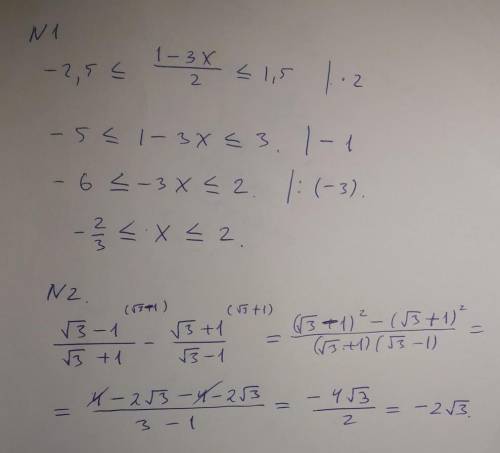 N1
-2,5 ≤ (1-3x)/2 ≤ 1,5 |·2
-5 ≤ 1-3x ≤ 3. |-1
-6 ≤ -3x ≤ 2. |:(-3).
-2/3 ≤ x ≤ 2.
N2.
(√3-1)/(√3+1) ^(√3-1) - (√3+1)/(√3-1) ^(√3+1) = ((√3-1)²-(√3+1)²)/((√3+1)(√3-1)) =
= (4-2√3-4-2√3)/(3-1) = (-4√3)/2 = -2√3.